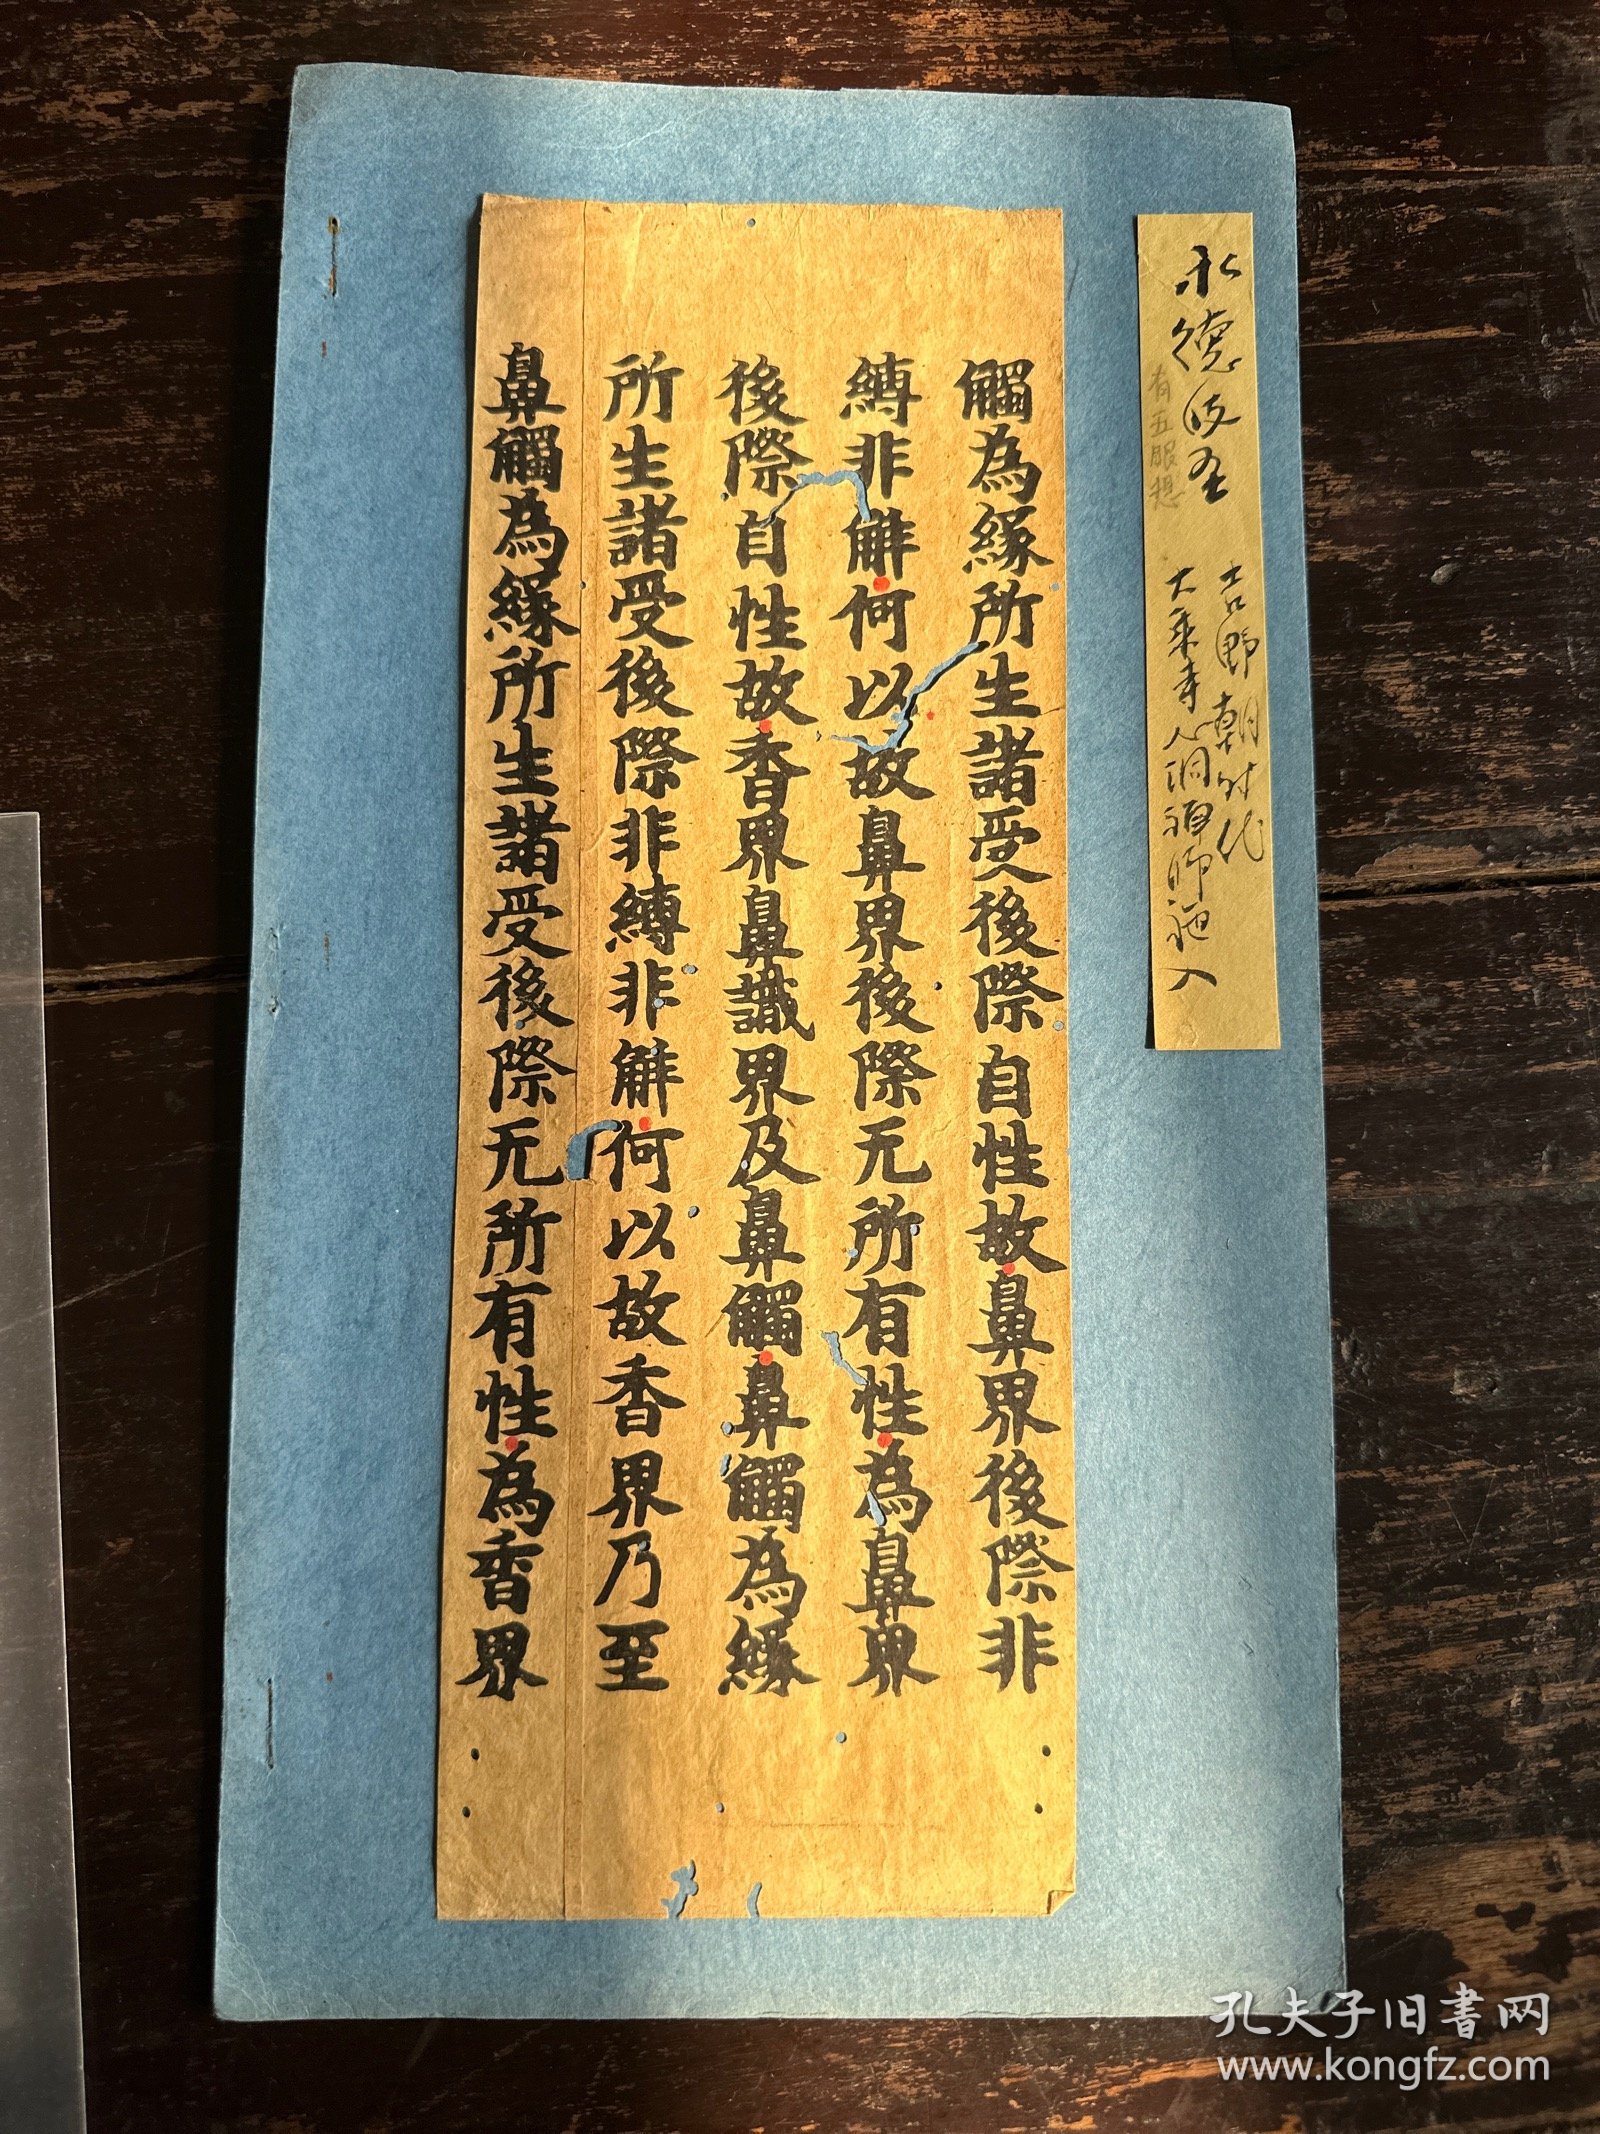 永德
吉野朝时代
大乘寺心洞禅师
觸為緣所生諸受後際自性故鼻界後際非
縛非解何以故鼻界後際无所有性為鼻界
後際自性故香界鼻識界及鼻觸鼻觸為緣
所生諸受後際非縛非解何以故香界乃至
鼻觸為緣所生諸受後際无所有性為香界
孔夫子旧书网
www.kongfz.com